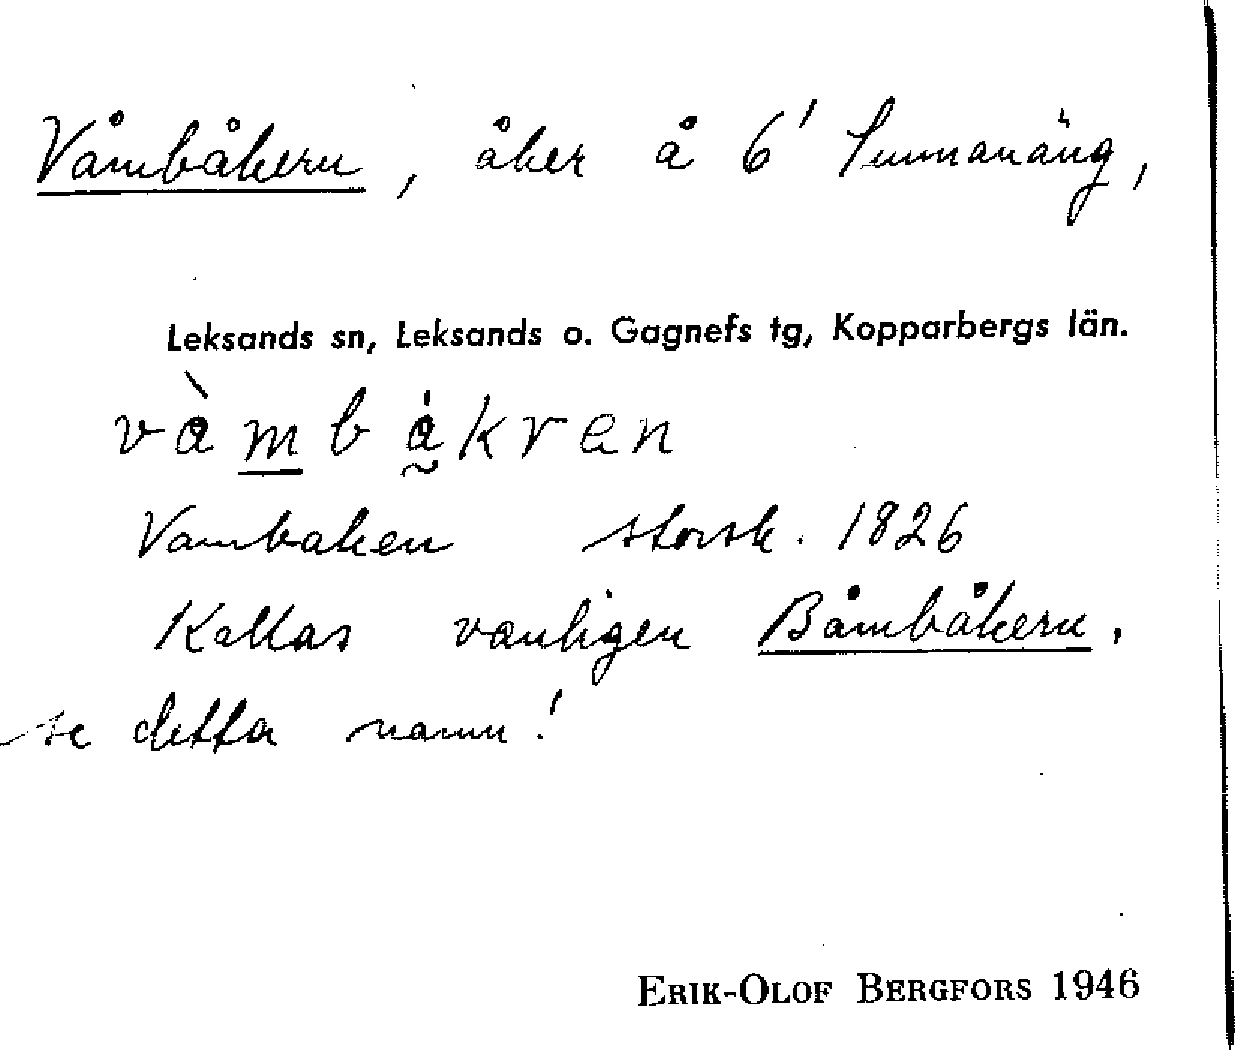 Våmbåkern, åker å 6' Sunnanäng,
Leksands sn, Leksands o. Gagnefs tg, Kopparbergs län.
våmbåkren
Vambaken storsk. 1826
Kallas vanligen Båmbåkern,
se detta namn!
ERIK-OLOF BERGFORS 1946